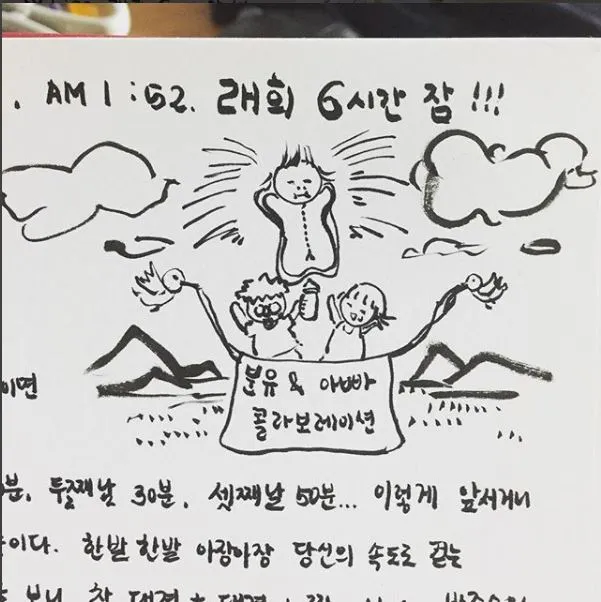 . AM 1:52. 래회 6시간 잠 !!!
분유 & 아빠
콜라보레이션
이면
분, 둘째날 30분, 셋째날 50분... 이렇게 앞서거니
이다. 한발 한발 아장아장 당신의 속도로 걷는
보니 참